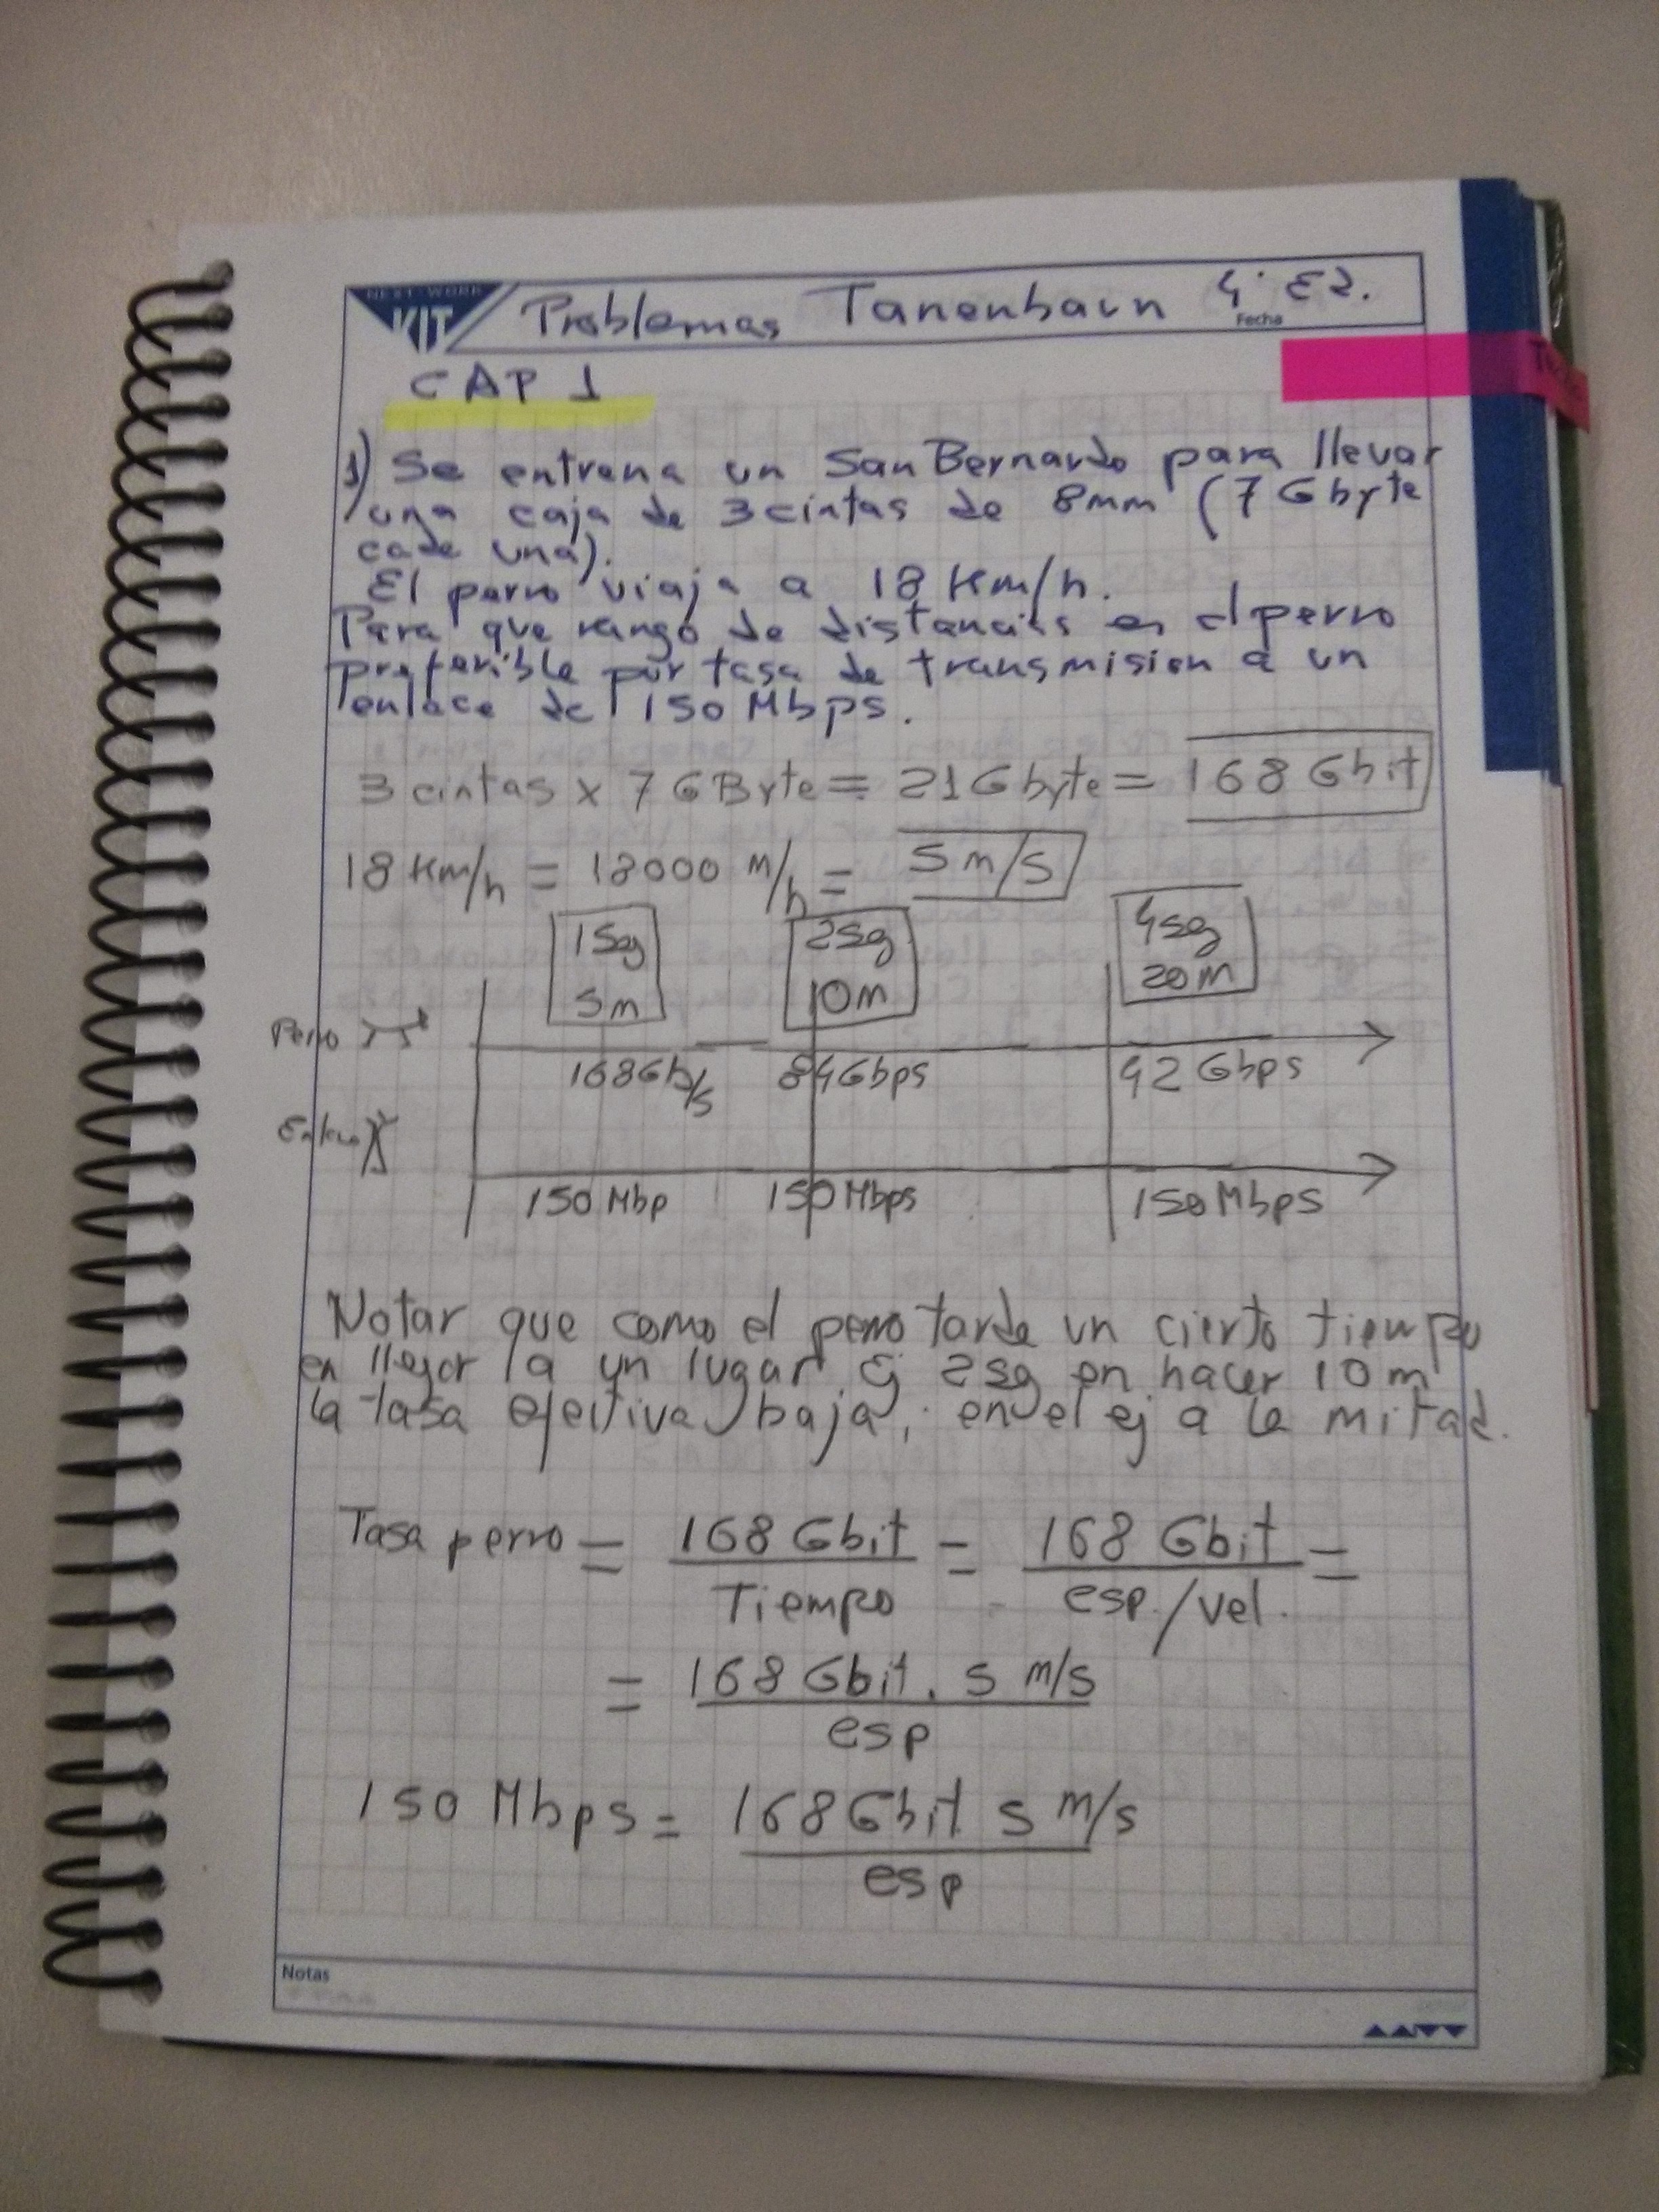 NEXT WORK
KIT
Problemas Tanenbaun 4° Ed.
Fecha
CAP 1
1) Se entrena un San Bernardo para llevar
una caja de 3 cintas de 8mm (7 Gbyte
cada una).
El perro viaja a 18 Km/h.
Para que rango de distancias es el perro
preferible por tasa de transmision a un
enlace de 150 Mbps.
3 cintas x 7 GByte = 21 Gbyte = 168 Gbit
18 Km/h = 18000 m/h = 5 m/s
1 Seg 2 sg 4 sg
5m 10m 20m
Perro
168Gb/s 84Gbps 42 Gbps
Enlace
150 Mbp 150 Mbps 150 Mbps
Notar que como el perro tarda un cierto tiempo
en llegar a un lugar ej 2 sg en hacer 10 m
la tasa efectiva baja, en el ej a la mitad.
Tasa perro = 168 Gbit / Tiempo = 168 Gbit / esp./vel. =
= 168 Gbit . 5 m/s / esp
150 Mbps = 168 Gbit 5 m/s / esp
Notas